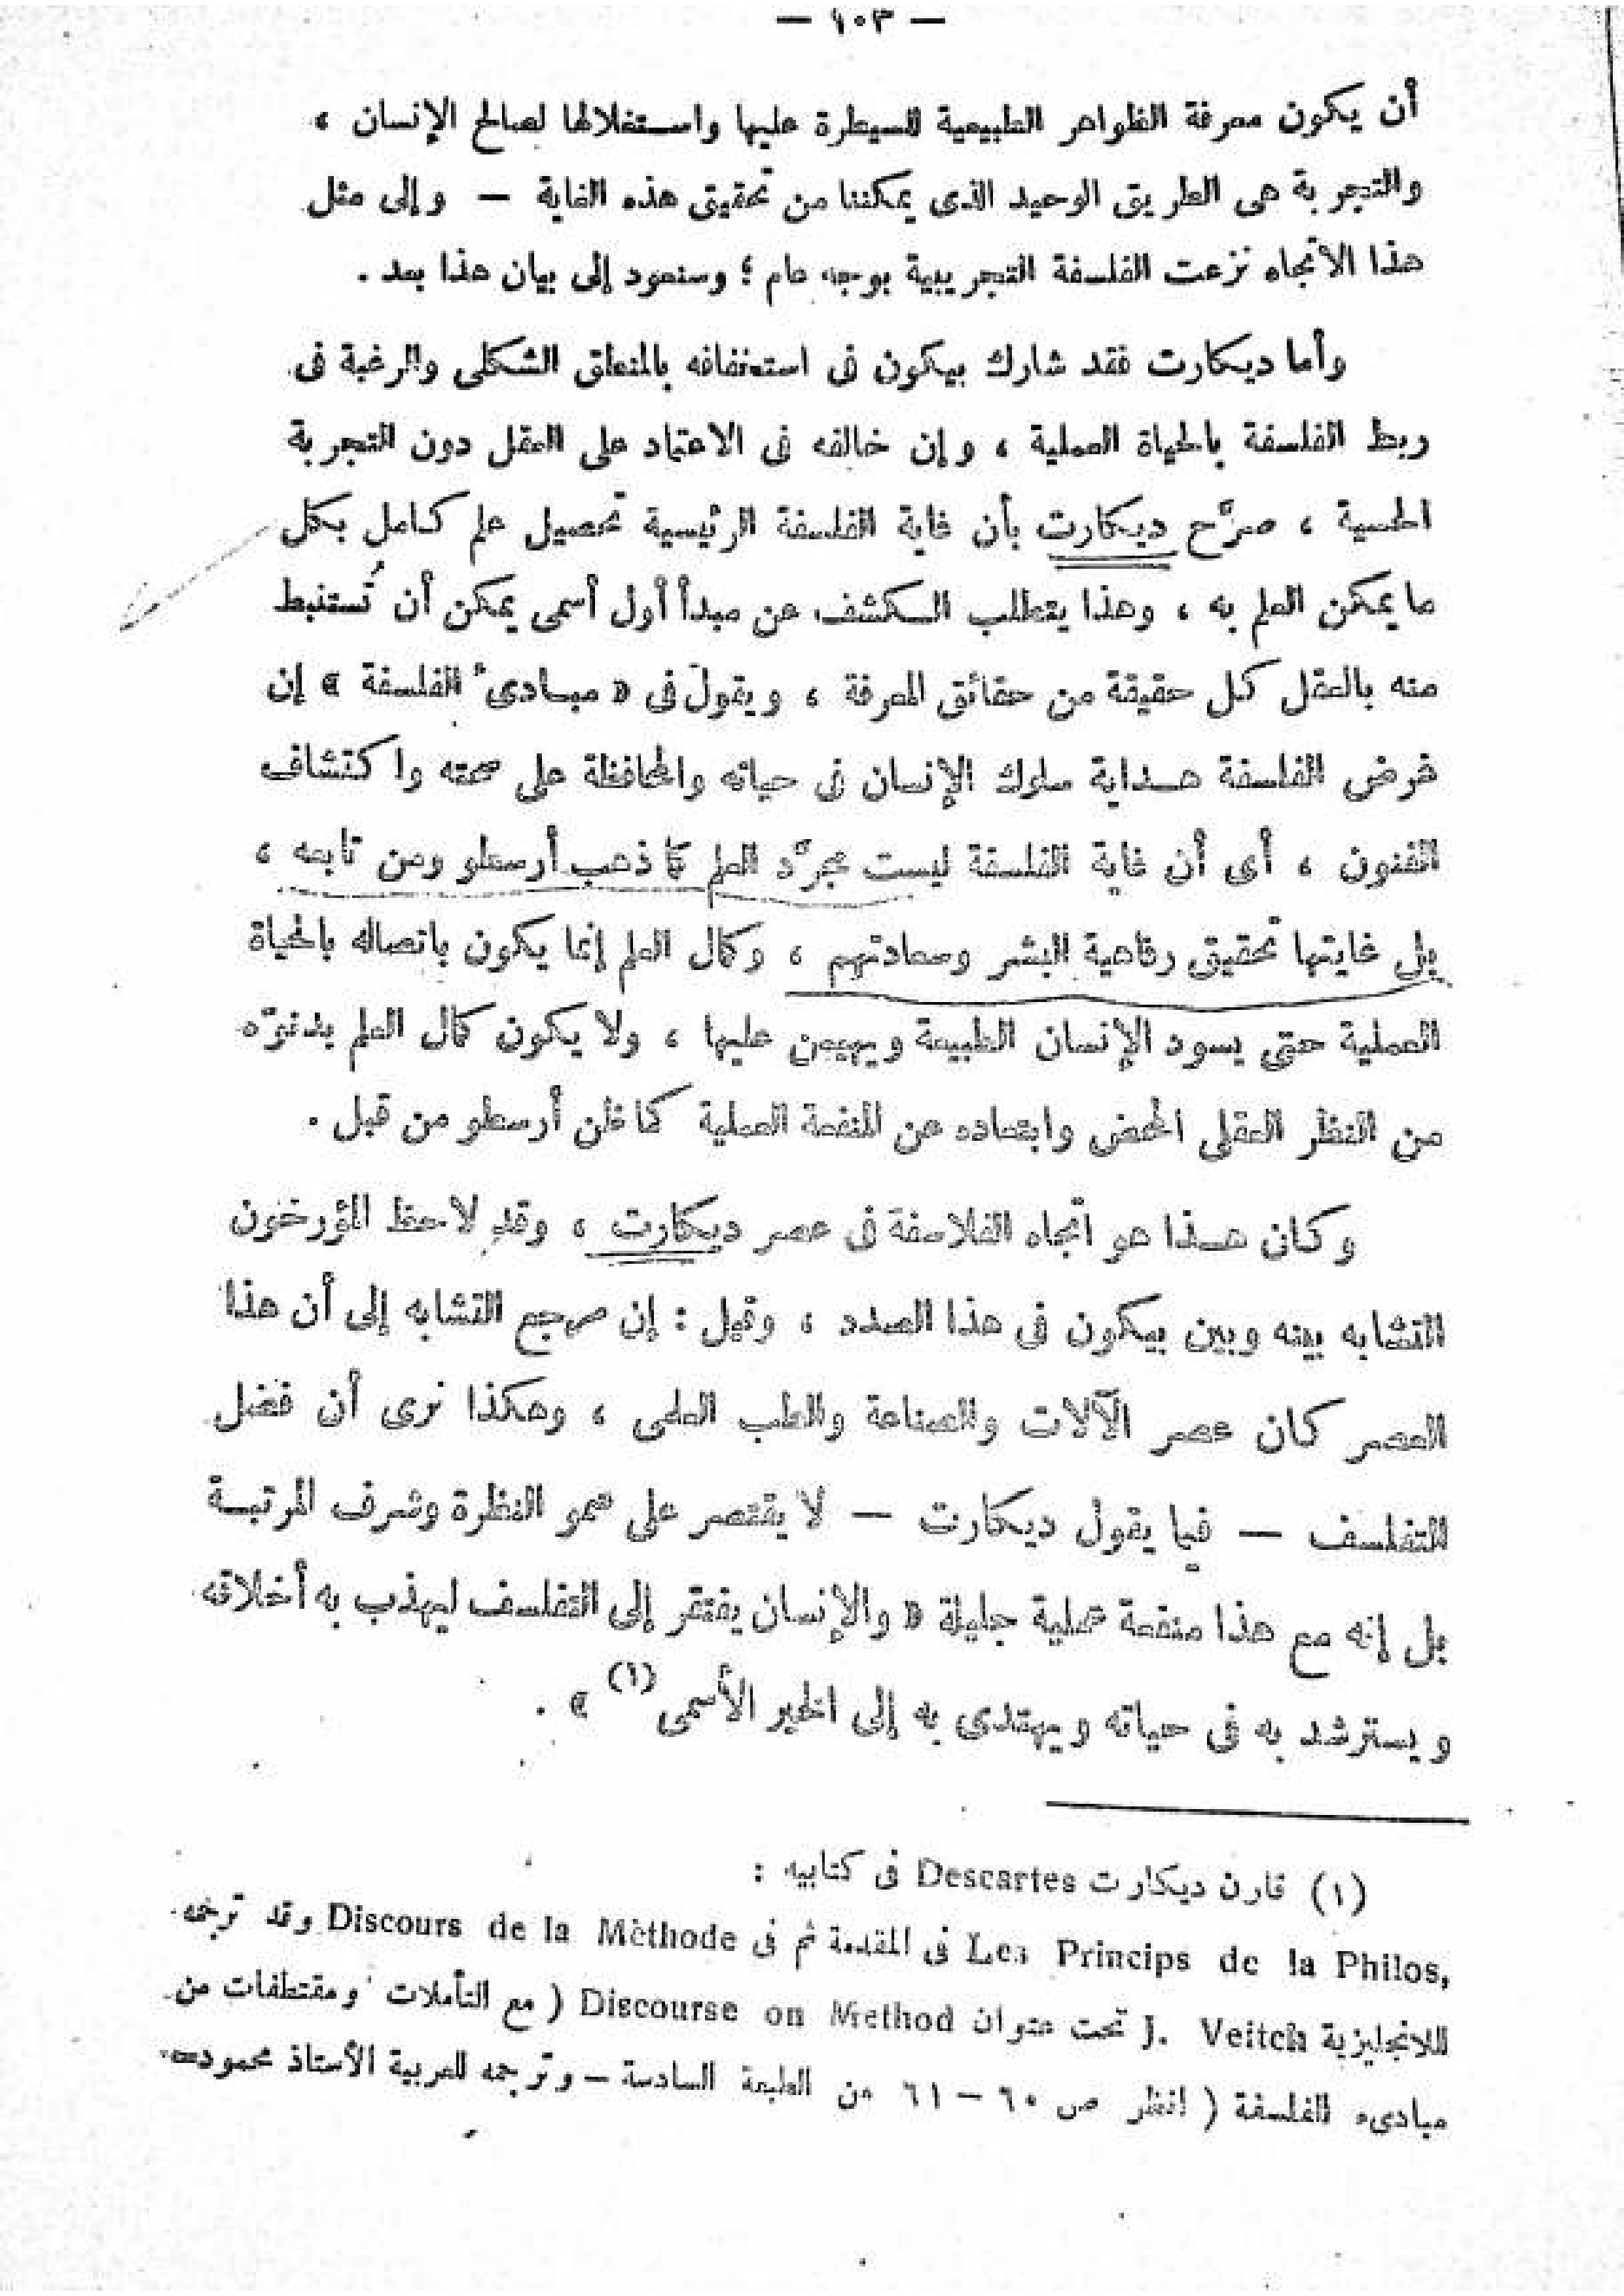 — ١٠٣ —
أن يكون معرفة الظواهر الطبيعية للسيطرة عليها واستغلالها لصالح الإنسان ،
والتجربة هى الطريق الوحيد الذى يمكننا من تحقيق هذه الغاية — وإلى مثل
هذا الاتجاه نزعت الفلسفة التجريبية بوجه عام ؛ وسنعود إلى بيان هذا بعد .
وأما ديكارت فقد شارك بيكون فى استخفافه بالمنطق الشكلى والرغبة فى
ربط الفلسفة بالحياة العملية ، وإن خالفه فى الاعتماد على العقل دون التجربة
الحسية ، صرَّح ديكارت بأن غاية الفلسفة الرئيسية تحصيل علم كامل بكل
ما يمكن العلم به ، وهذا يتطلب الكشف عن مبدأ أول أسمى يمكن أن تُستنبط
منه بالعقل كل حقيقة من حقائق المعرفة ، ويقول فى « مبادىء الفلسفة » إن
غرض الفلسفة هداية سلوك الإنسان فى حياته والمحافظة على صحته واكتشاف
الفنون ، أى أن غاية الفلسفة ليست مجرَّد العلم كما ذهب أرسطو ومن تابعه ،
بل غايتها تحقيق رفاهية البشر وسعادتهم ، وكمال العلم إنما يكون باتصاله بالحياة
العملية حتى يسود الإنسان الطبيعة ويهيمن عليها ، ولا يكون كمال العلم بدنوّه
من النظر العقلى المحض وابتعاده عن المنفعة العملية كما ظن أرسطو من قبل .
وكان هذا هو اتجاه الفلاسفة فى عصر ديكارت ، وقد لاحظ المؤرخون
التشابه بينه وبين بيكون فى هذا الصدد ، وقيل : إن مرجع التشابه إلى أن هذا
العصر كان عصر الآلات والصناعة والطب العلمى ، وهكذا نرى أن فضل
التفلسف — فيما يقول ديكارت — لا يقتصر على سمو النظرة وشرف المرتبة
بل إنه مع هذا منفعة عملية جليلة « والإنسان يفتقر إلى التفلسف ليهذب به أخلاقه
ويسترشد به فى حياته ويهتدى به إلى الخير الأسمى (١) » .
(١) قارن ديكارت Descartes فى كتابيه :
Les Princips de la Philos, فى المقدمة ثم فى Discours de la Mèthode وقد ترجمه
للانجليزية J. Veitch تحت عنوان Discourse on Method ( مع التأملات ومقتطفات من
مبادىء الفلسفة ( انظر ص ٦٠ — ٦١ من الطبعة السادسة — وترجمه للعربية الأستاذ محمود